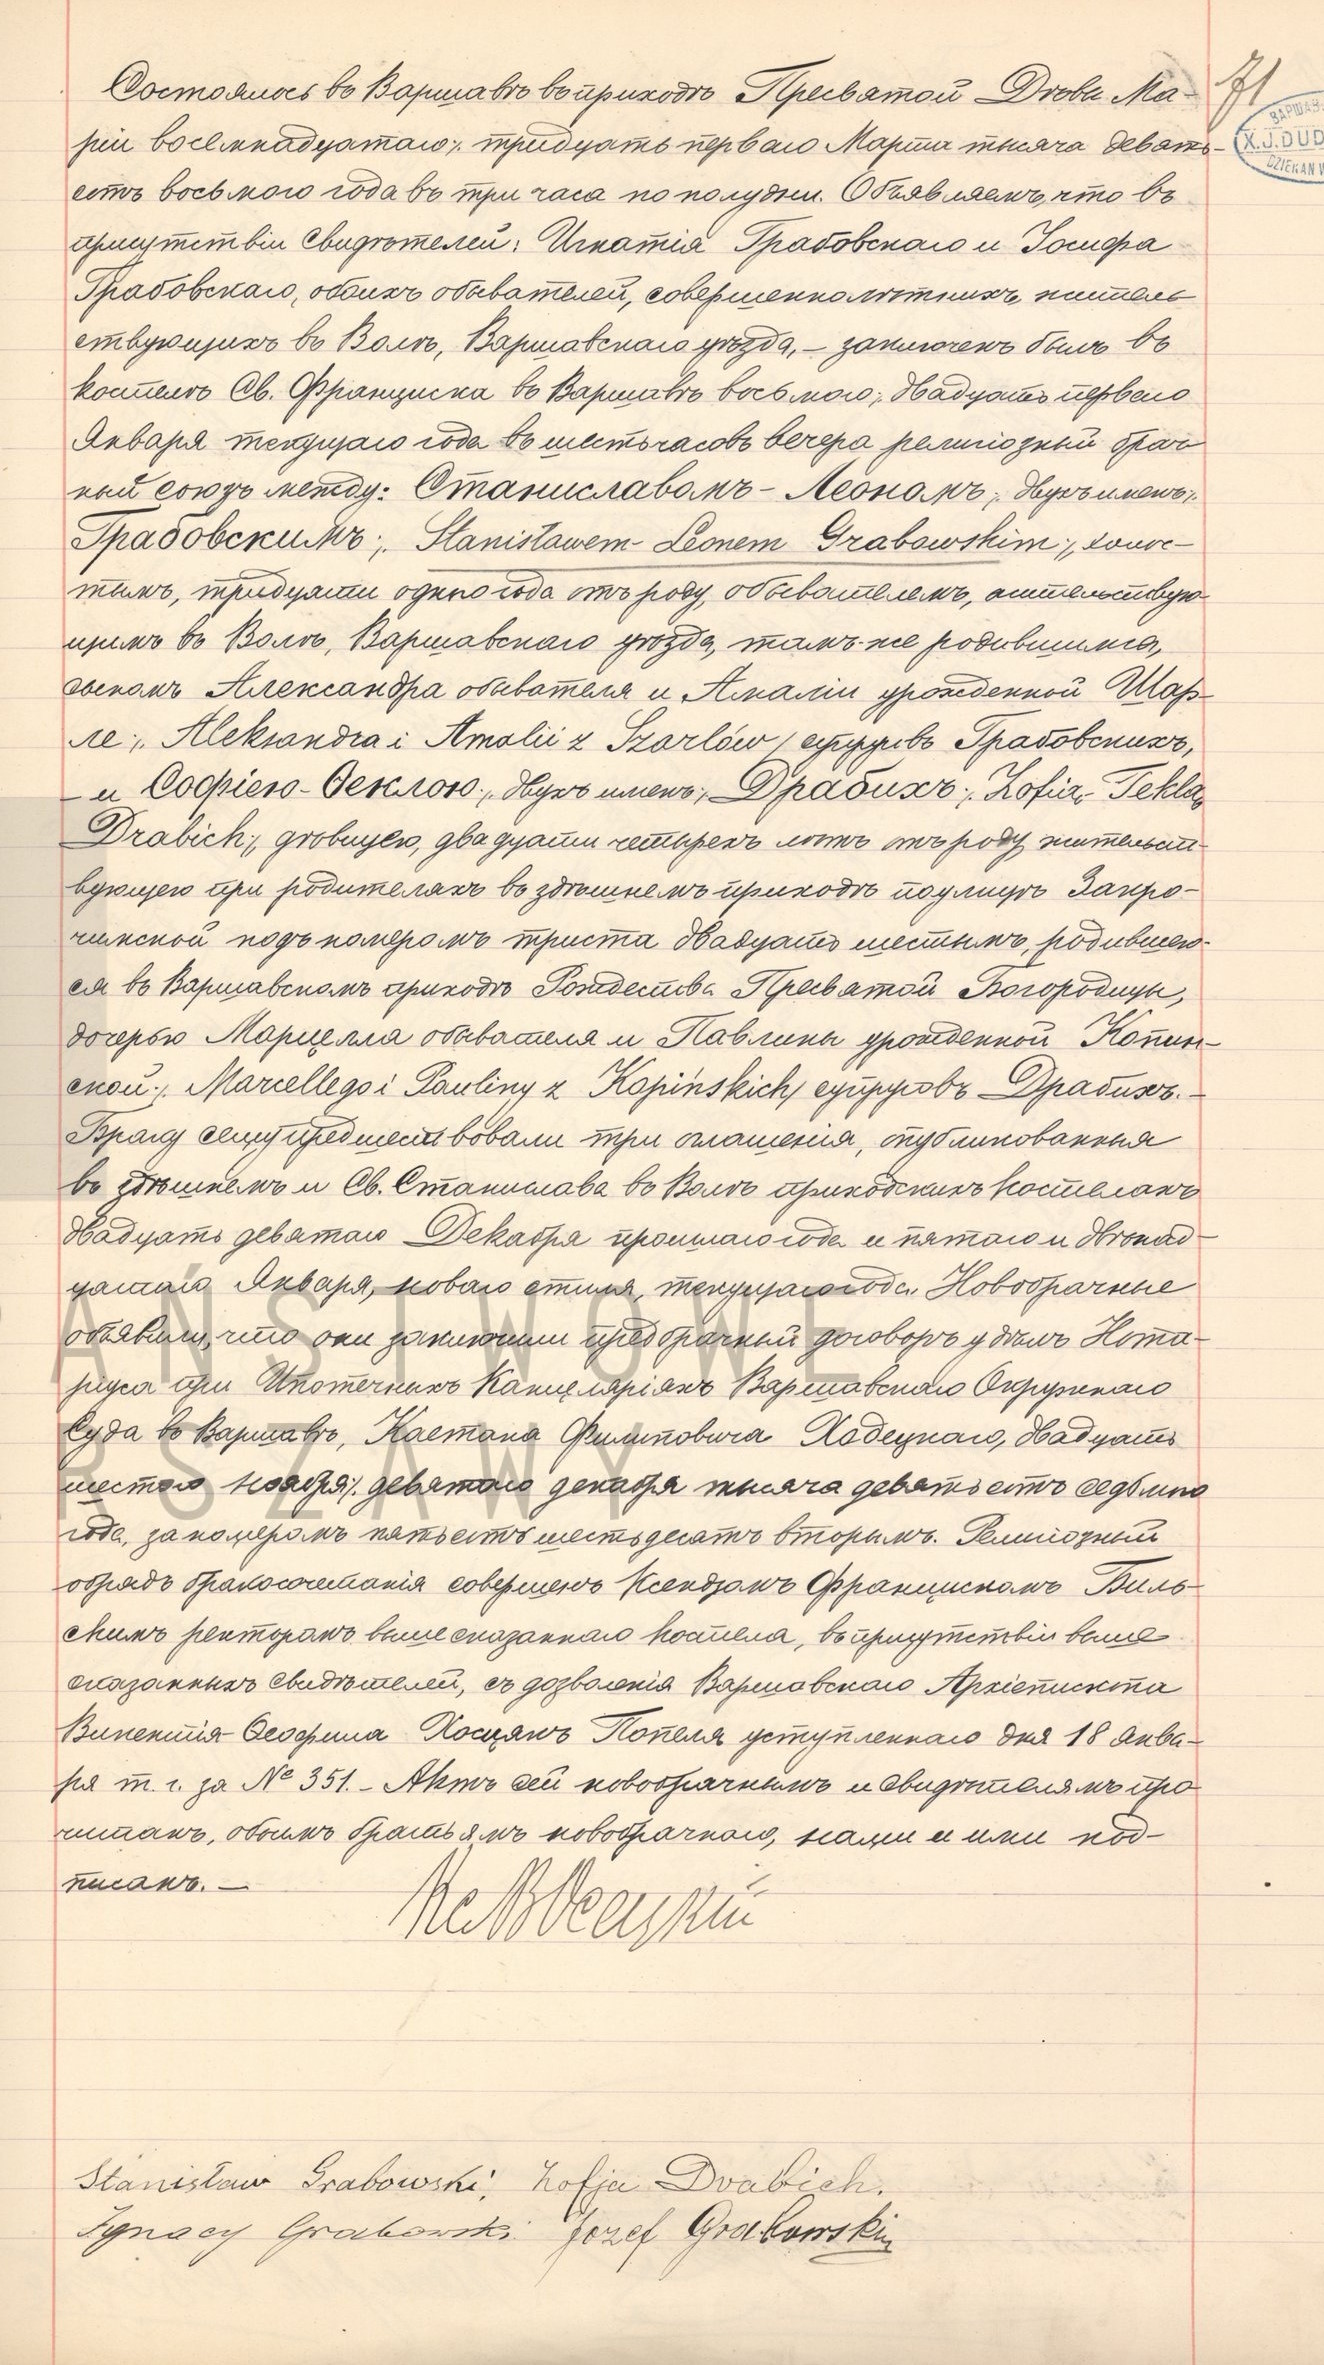 Состоялось въ Варшавѣ въ приходѣ Пресвятой Дѣвы Ма- 71
ріи восемнадцатаго /: тридцать перваго Марта тысяча девять-
сотъ восьмого года въ три часа по полудни. Объявляемъ, что въ
присутствіи свидѣтелей: Игнатія Грабовскаго и Іосифа
Грабовскаго, обоихъ обывателей, совершеннолѣтнихъ, житель
ствующихъ въ Волѣ, Варшавскаго уѣзда, – заключенъ былъ въ
костелѣ Св. Франциска въ Варшавѣ восьмого /: двадцать перваго
Января текущаго года въ шесть часовъ вечера религіозный брач
ный союзъ между: Станиславомъ-Леономъ /: двухъ именъ /:
Грабовскимъ /: Stanisławem-Leonem Grabowskim /, холос-
тымъ, тридцати одного года отъ роду, обывателемъ, жительствую
щимъ въ Волѣ, Варшавскаго уѣзда, тамъ-же родившимся,
сыномъ Александра обывателя и Амаліи урожденной Шар-
ле /: Aleksandra i Amolii z Szarlów / супруговъ Грабовскихъ,
– и Софіею-Ѳеклою /: двухъ именъ /: Драбихъ /: Zofią-Teklą
Drabich /, дѣвицею, двадцати четырехъ лѣтъ отъ роду жительст
вующею при родителяхъ въ здѣшнемъ приходѣ по улицѣ Закро-
чимской подъ номеромъ триста двадцать шестымъ, родившею-
ся въ Варшавскомъ приходѣ Рождества Пресвятой Богородицы,
дочерью Марцелла обывателя и Павлины урожденной Копин-
ской /: Marcellego i Pauliny z Kopińskich / супруговъ Драбихъ. –
Браку сему предшествовали три оглашенія, опубликованныя
въ здѣшнемъ и Св. Станислава въ Волѣ приходскихъ костелахъ
двадцать девятаго Декабря прошлаго года и пятаго и двѣнад-
цатаго Января, новаго стиля, текущаго года. Новобрачные
объявили, что они заключили предбрачный договоръ у дѣлъ Нота-
ріуса при Ипотечныхъ Канцеляріяхъ Варшавскаго Окружнаго
Суда въ Варшавѣ, Каетана Филиповича Ходецкаго, двадцать
шестого ноября /: девятаго декабря тысяча девятьсотъ седьмого
года, за номеромъ пятьсотъ шестьдесятъ вторымъ. Религіозный
обрядъ бракосочетанія совершенъ Ксендзомъ Францискомъ Виль-
скимъ ректоромъ вышесказаннаго костела, въ присутствіи выше
сказанныхъ свидѣтелей, съ дозволенія Варшавскаго Архіепископа
Викентія Ѳеофила Хосцякъ Попеля уступленнаго дня 18 Янва-
ря т. г. за № 351. – Актъ сей новобрачнымъ и свидѣтелямъ про
читанъ, обоимъ братьямъ новобрачнаго, нами и ими под-
писанъ. –
Stanisław Grabowski, Zofja Drabich.
Ignacy Grabowski Jozef Grabowski